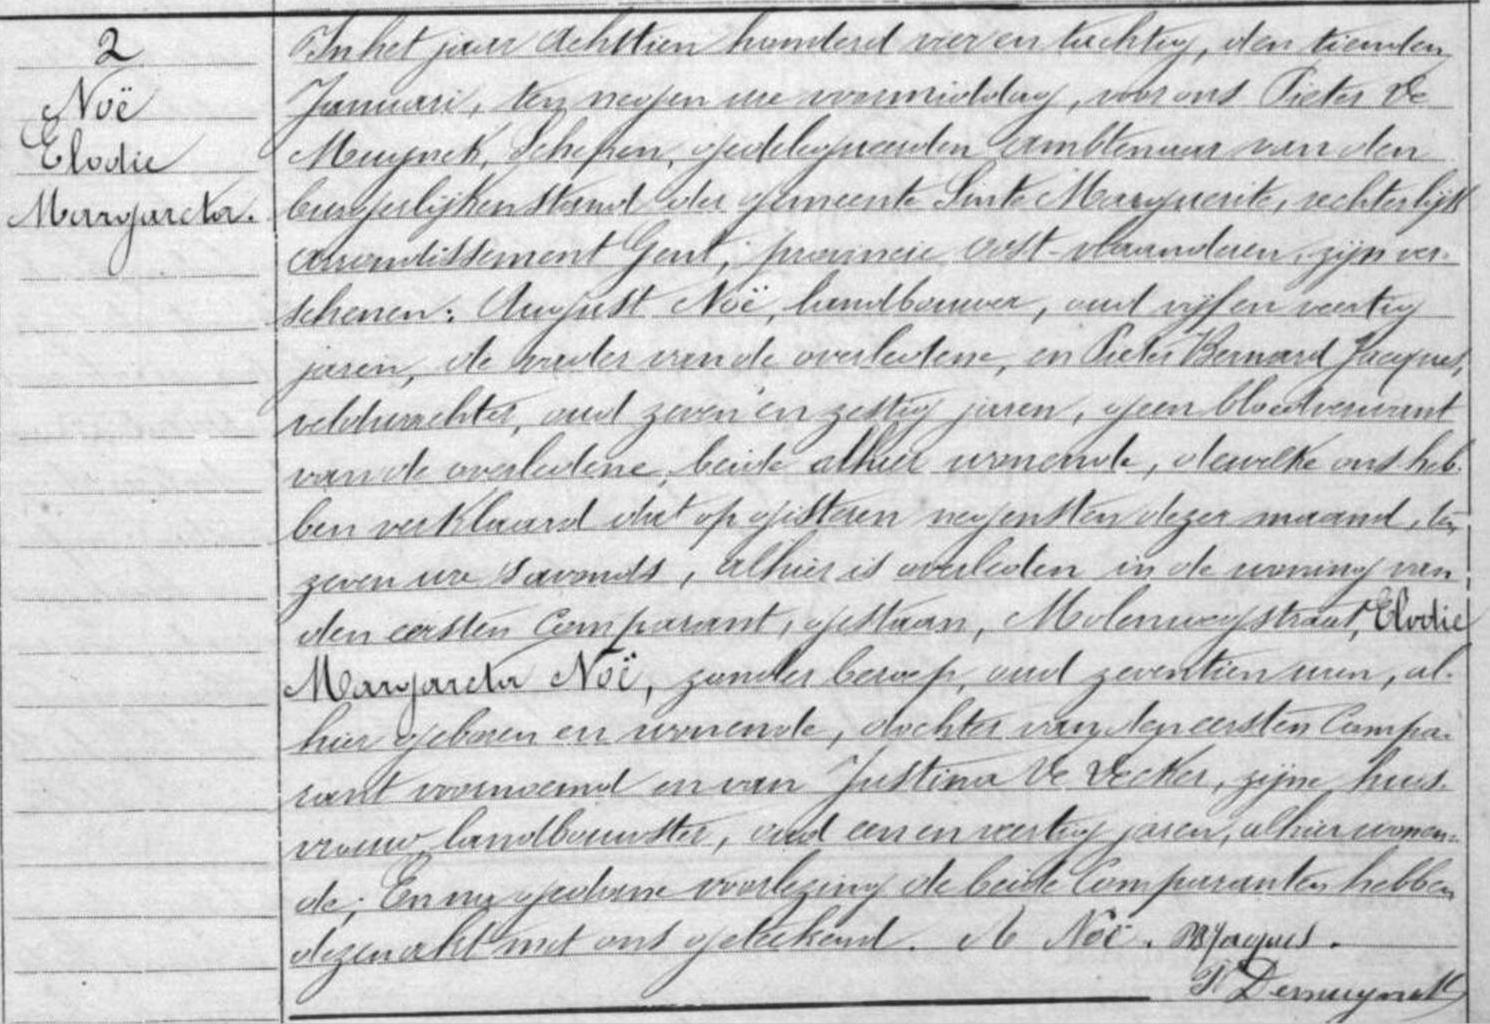 2
Noë
Elodie
Margareta.
In het jaar achttien honderd vier en tachtig, den tienden
Januari, ten negen ure voormiddag, voor ons Pieter De
Muynck, Schepen, gedelegueerden ambtenaar van den
burgerlijken stand der gemeente Sinte Marguerite, rechterlijk
arrondissement Gent, provincie oost-vlaanderen, zijn ver-
schenen: August Noë, landbouwer, oud vijf en veertig
jaren, de vader van de overledene, en Pieter Bernard Jacques,
veldwachter, oud zeven en zestig jaren, geen bloedverwant
van de overledene, beide alhier wonende, dewelke ons heb-
ben verklaard dat op gisteren negensten dezer maand, ten
zeven ure s'avonds, alhier is overleden in de woning van
den eersten Comparant, gestaan, Molenwegstraat, Elodie
Margareta Noë, zonder beroep, oud zeventien uren, al-
hier geboren en wonende, dochter van den eersten Compa-
rant voornoemd en van Justina De Decker, zijne huis-
vrouw, landbouwster, oud een en veertig jaren, alhier wonen-
de; En na gedane voorlezing de beide Comparanten hebben
deze akt met ons geteekend. A Noë. Jaques.
P Demuynck